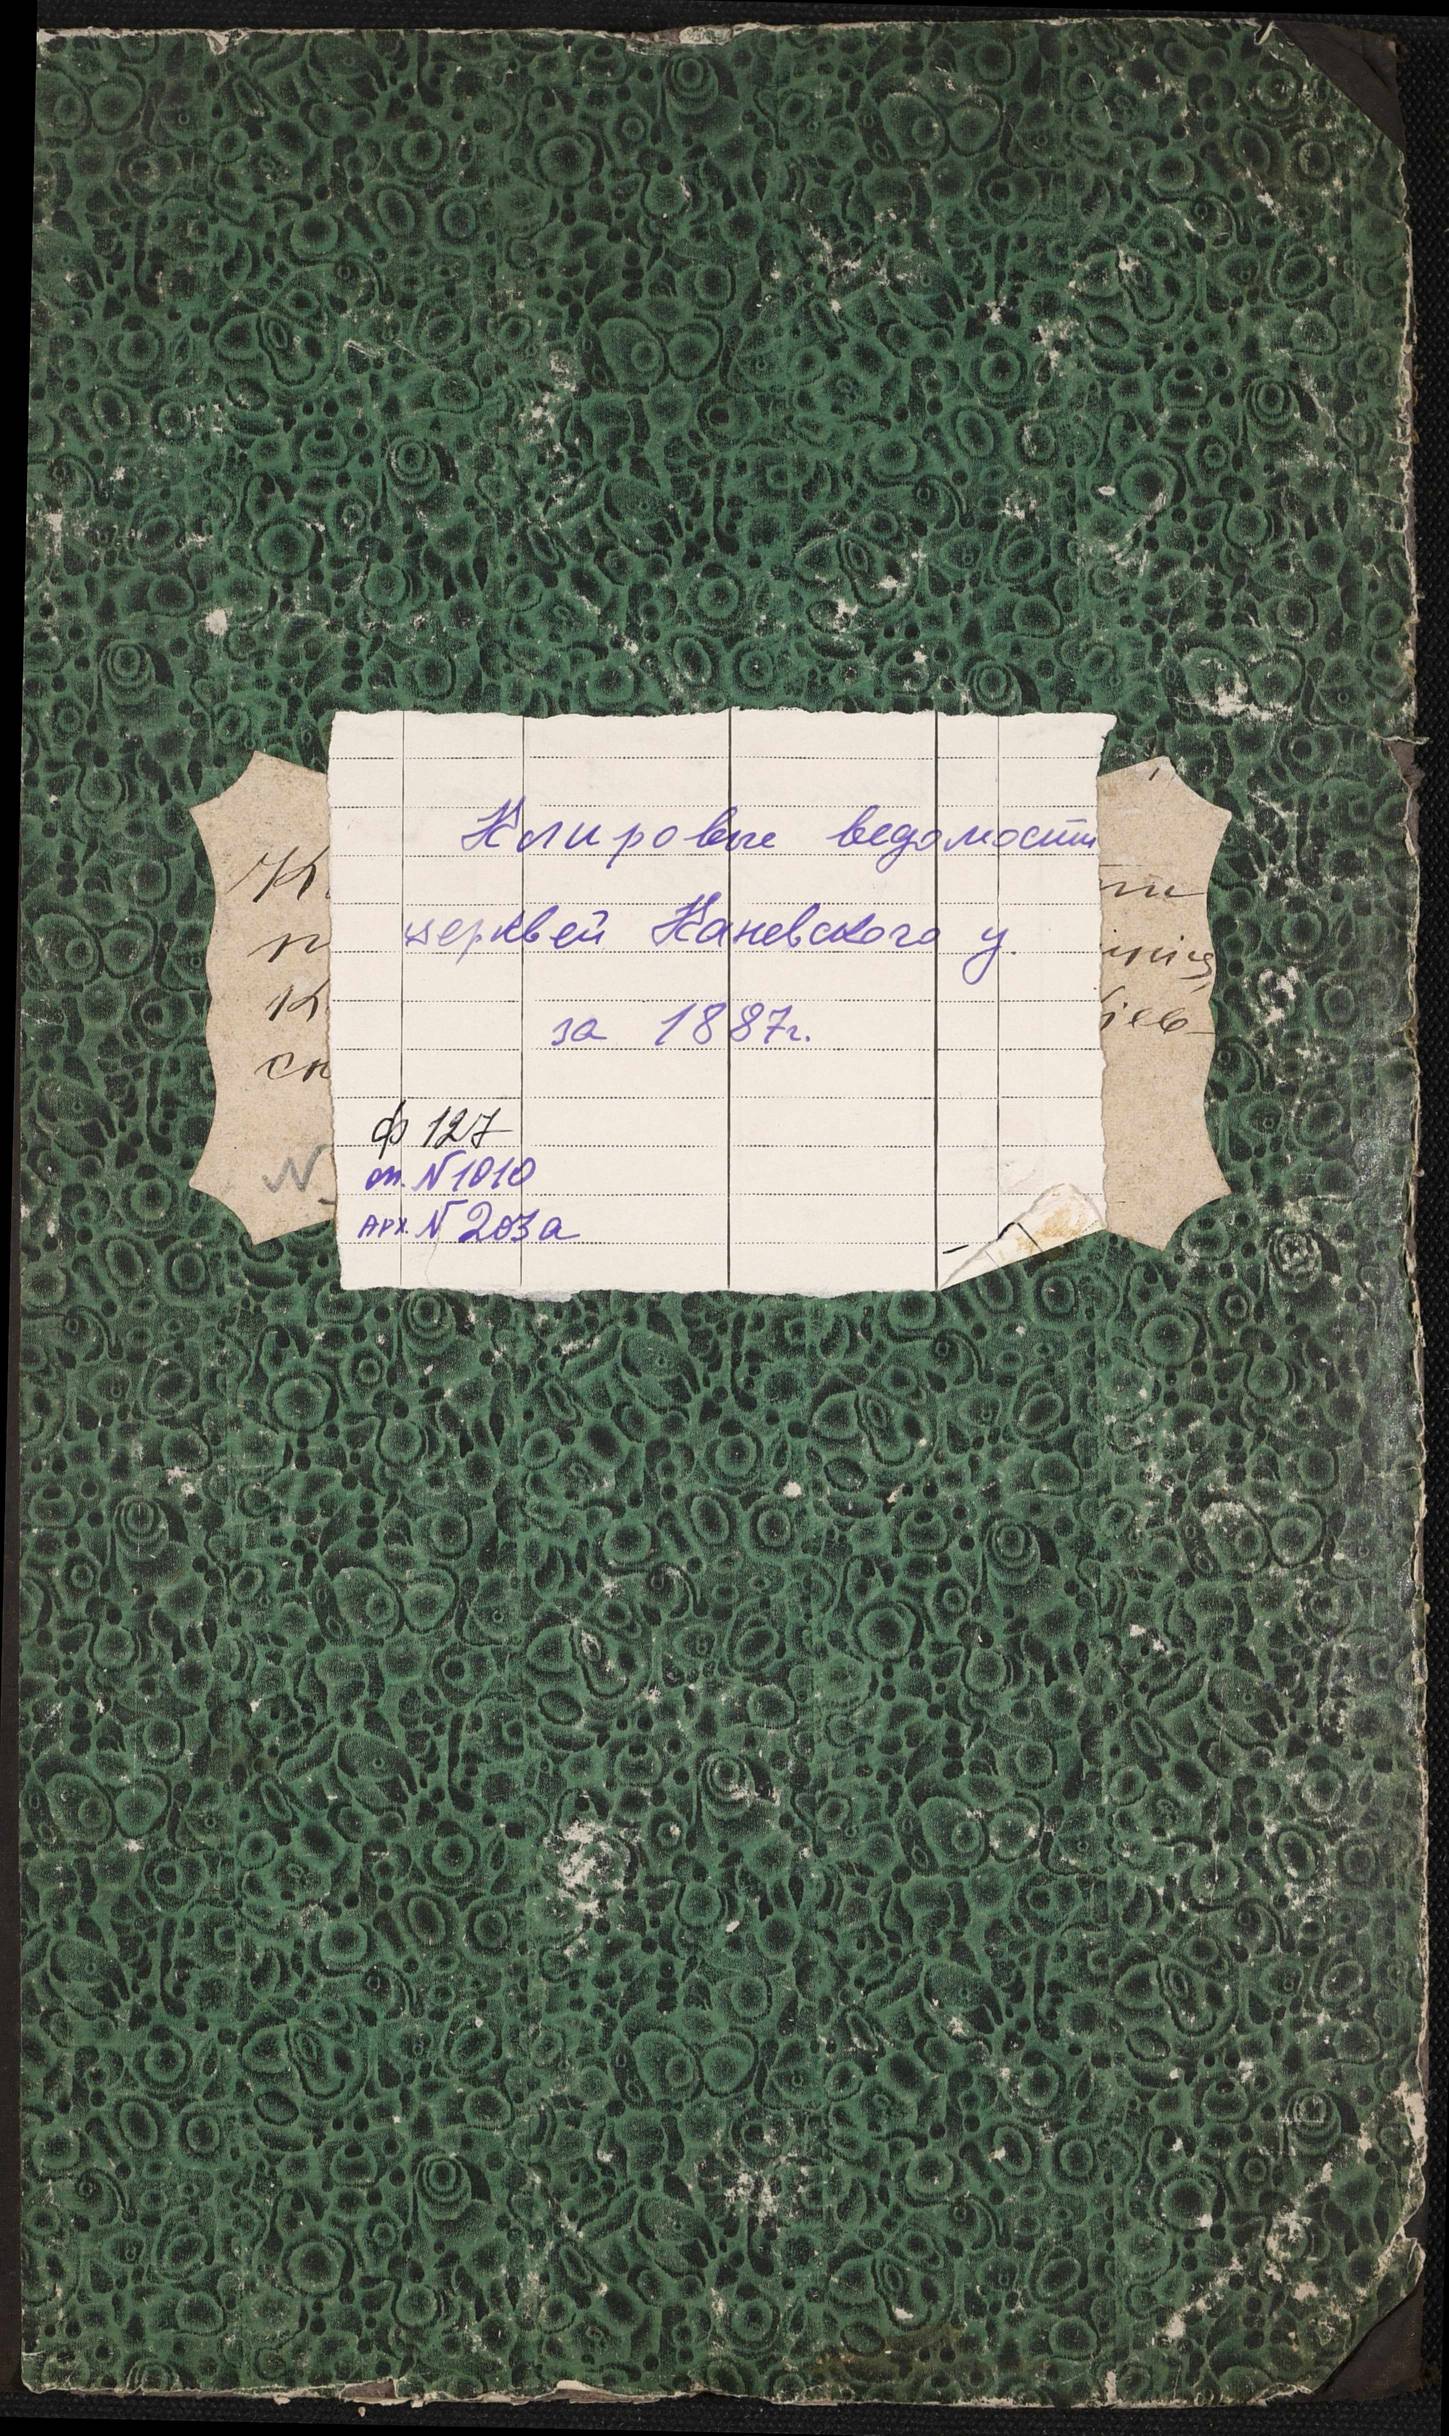 Клировые ведомости
церквей Каневского у.
за 1887г.
ф 127
оп. N 1010
АРХ. N 203а